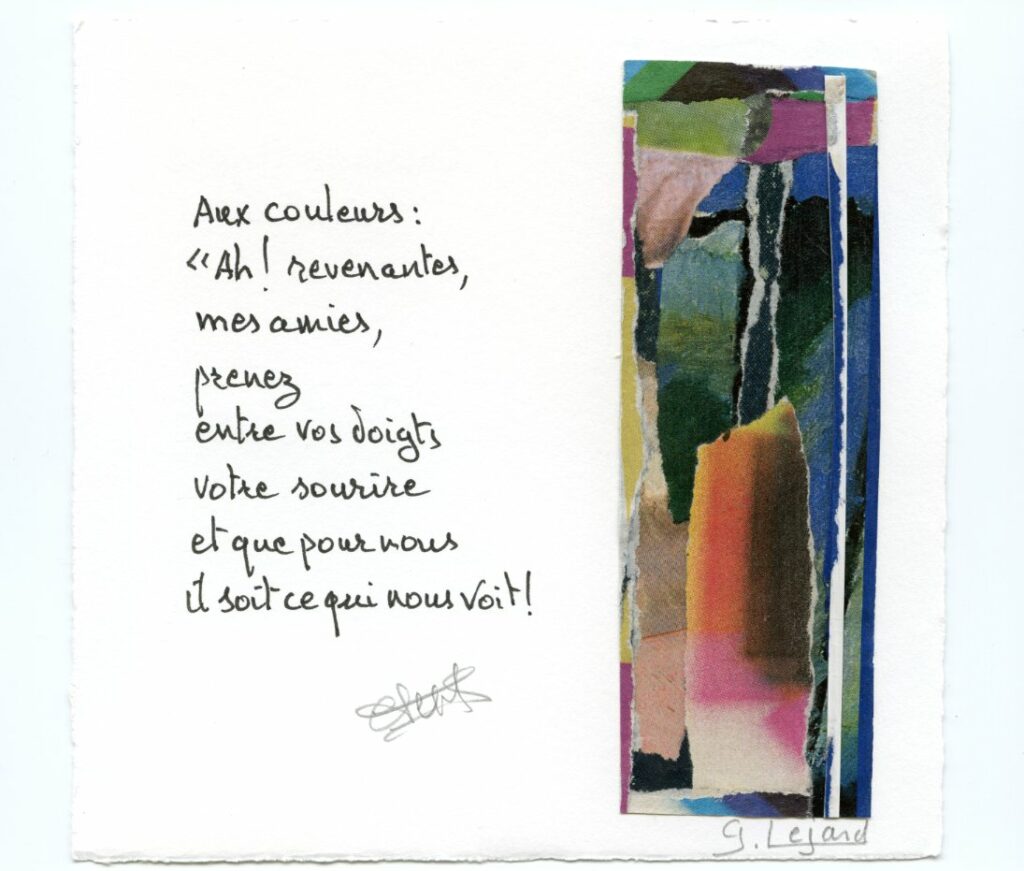 Aux couleurs :
«Ah! revenantes,
mes amies,
prenez
entre vos doigts
votre sourire
et que pour nous
il soit ce qui nous voit!
G. Lejard